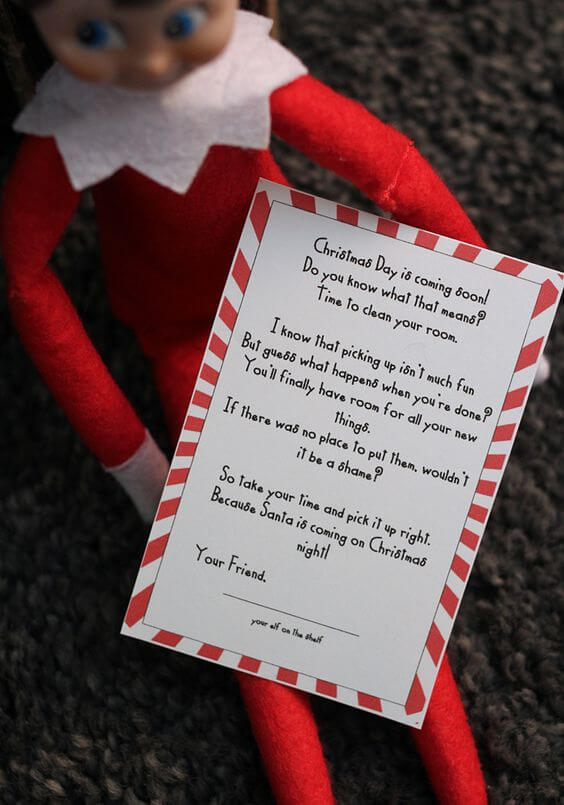 Christmas Day is coming soon!
Do you know what that means?
Time to clean your room.
I know that picking up isn't much fun
But guess what happens when you're done?
You'll finally have room for all your new
things.
If there was no place to put them, wouldn't
it be a shame?
So take your time and pick it up right.
Because Santa is coming on Christmas
night!
Your Friend,
your elf on the shelf